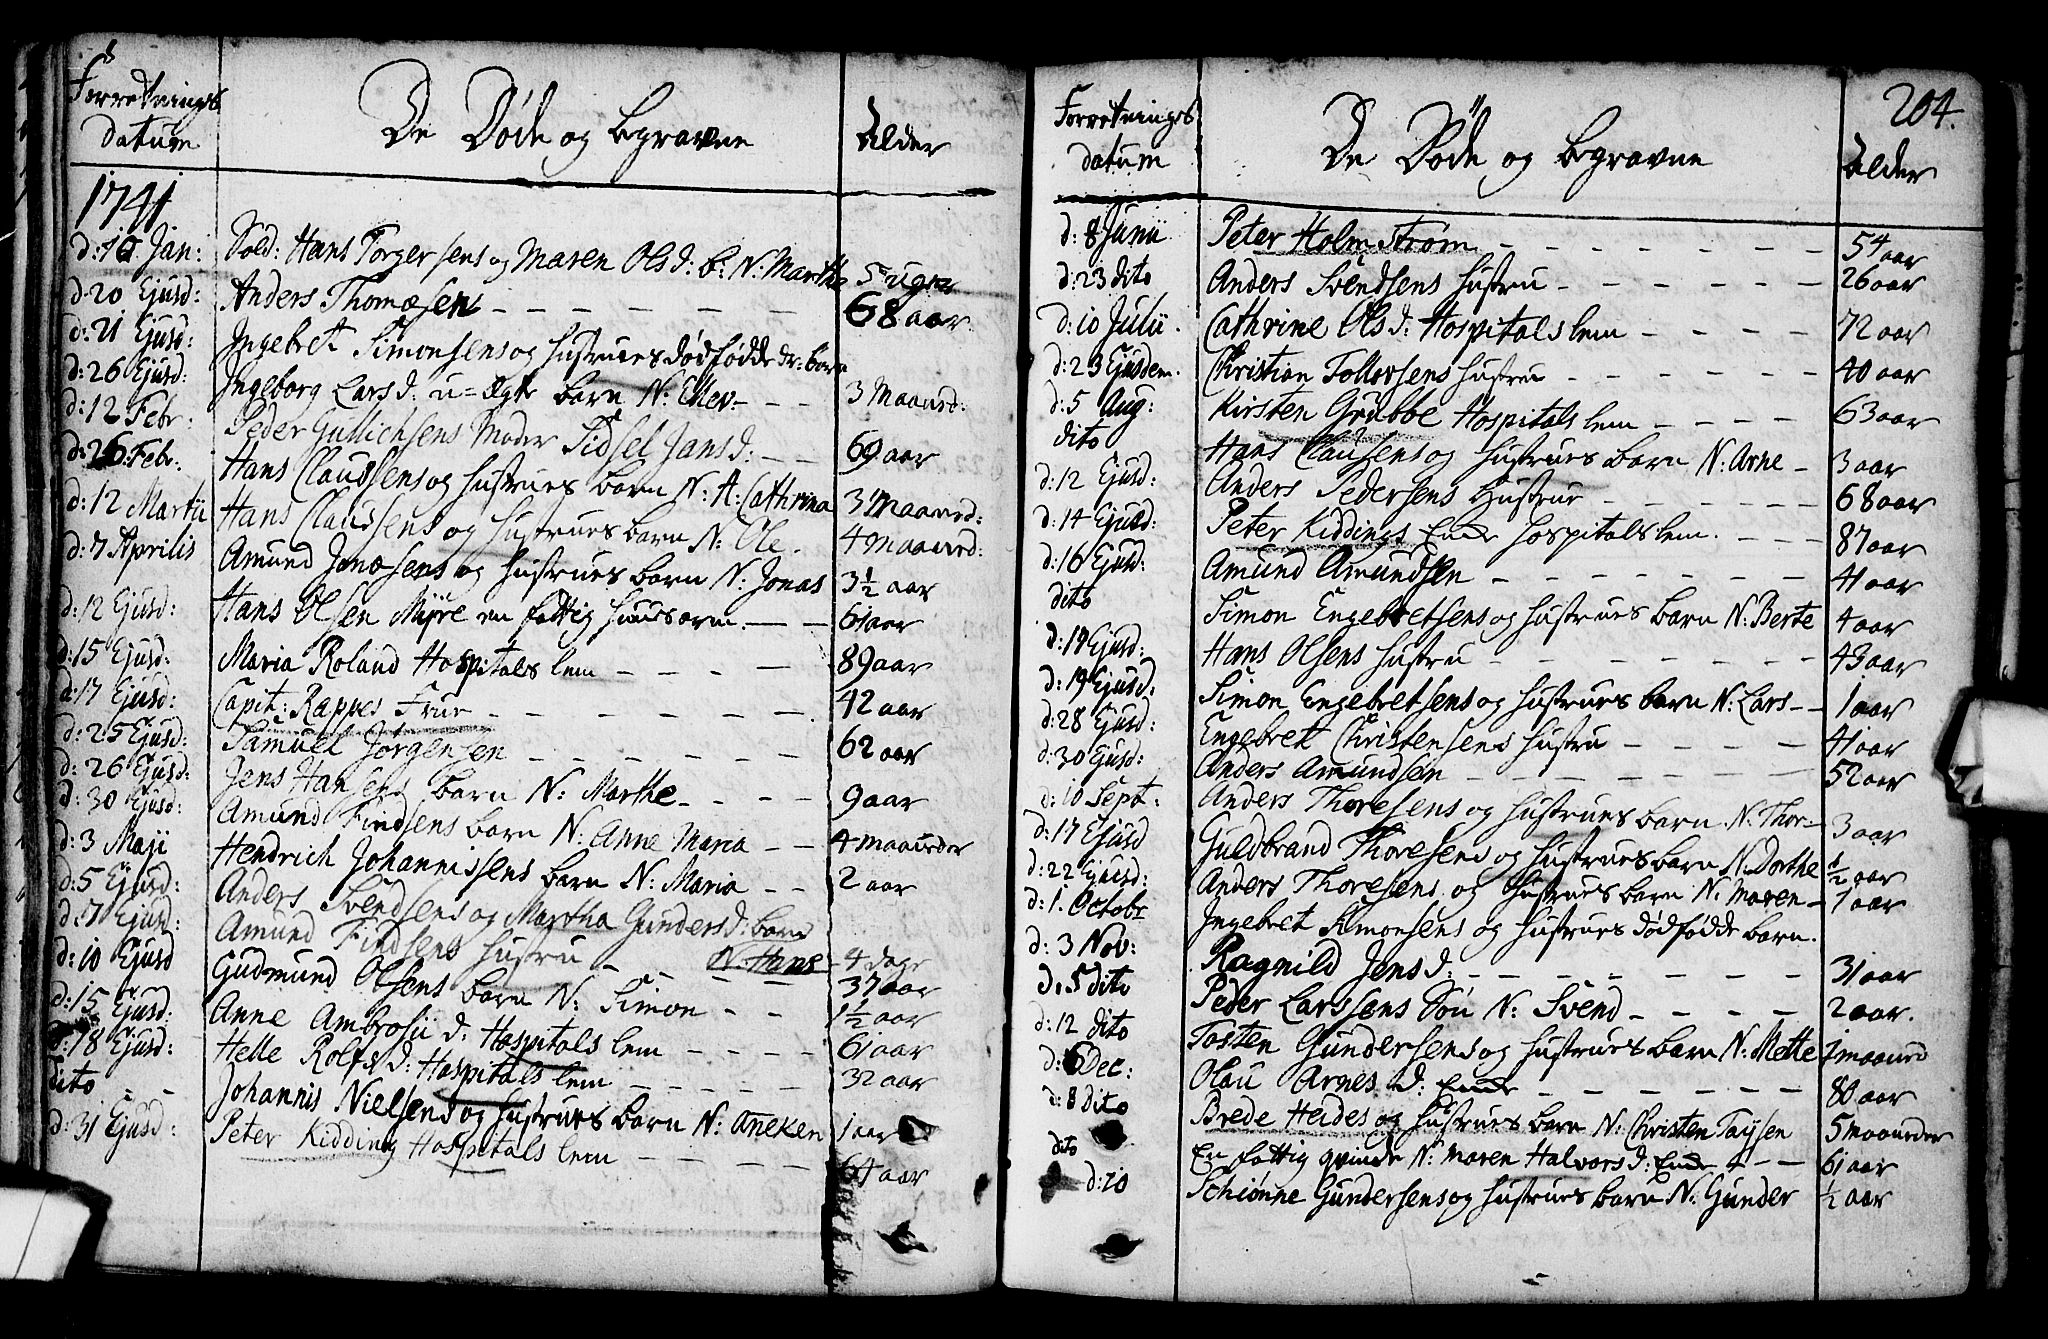 Forretnings datum
De Døde og begravne
Alder
1741
d: 10 Jan: Sold: Hans Torgersens og Maren Ols d: b: N: Marthe 5 uger
d: 20 Ejusd: Anders Thomæsen - - - - - - 68 aar.
d: 21 Ejusd: Ingebret Simonsens og Hustrues dødfødde dr: barn
d: 26 Ejusd: Ingeborg Lars d: u=ægte barn N: Ellev. - - - 3 Maaned:
d: 12 Febr: Peder Gullichsens Moder Sidsel Jans d: - - 69 aar
d: 26 Febr. Hans Claussens og Hustrues barn N: A: Cathrina 3 Maaned:
d: 12 Martii Hans Claussens og Hustrues barn N: Ole. 4 maaned:
d: 7 Aprilis Amund Jonæsens og Hustrues barn N: Jonas 3½ aar
d: 12 Ejusd: Hans Olsen Myre en fattig huusarm. - - 61 aar
d: 15 Ejusd: Maria Roland Hospitals lem - - - - 89 aar
d: 17 Ejusd: Capit: Rappes Frue - - - - - - 42 aar
d: 25 Ejusd: Samuel Jørgensen - - - - - - 62 aar
d: 26 Ejusd: Jens Hansens barn N: Marthe - - - - 9 aar
d: 30 Ejusd: Amund Findsens barn N: Anne Maria - - 4 maaneder
d: 3 Maji Hendrich Johannissens barn N: Maria - - 2 aar
d: 5 Ejusd: Anders Svendsens og Martha Gunders d: barn
N: Hans - 4 dage
d: 7 Ejusd: Amund Findsens Hustru - - - - 37 aar
d: 10 Ejusd Gudmund Olsens barn N: Simon - - 1½ aar
d: 15 Ejusd: Anne Ambrosii d: Hospitals lem - - - - 61 aar
d: 18 Ejusd: Helle Rolfs d: Hospitals lem - - - - - 32 aar
Dito - - Johannis Nielsens og Hustrues barn N: Anneken 1 aar
d: 31 Ejusd: Peter Kidding Hospitals lem - - - - - 64 aar
204.
Forretnings datum
De Døde og begravne
Alder
d: 8 Junii Peter Holmstrøm - - - - - - - 54 aar
d: 23 dito Anders Svendsens Hustru - - - - - 26 aar
d: 10 Julii. Cathrine Ols d: Hospitals lem - - - - 72 aar
d: 23 Ejusdem. Christian Tollovsens Hustru - - - - - - 40 aar
d: 5 Aug: Kirsten Grubbe Hospitals lem - - - - 63 aar
dito Hans Clausens og Hustrues barn N: Arne - 3 aar
d: 12 Ejusd: Anders Pedersens Hustrue - - - - - - 68 aar
d: 14 Ejusd: Peter Kiddings Enke Hospitals lem. - - - 87 aar
d: 16 Ejusd: Amund Amundsen - - - - - - - 41 aar
dito Simon Engebretsens og Hustrues barn N: Berte 4 aar
d: 17 Ejusd: Hans Olsens Hustru - - - - - - - - 43 aar
d: 19 Ejusd: Simon Engebretsens og Hustrues barn N: Lars - - 1 aar
d: 28 Ejusd: Engebret Christensens Hustru - - - - - 41 aar
d: 30 Ejusd: Anders Amundsen - - - - - - - - 52 aar
d: 10 Sept: Anders Thoresens og Hustrues barn N: Thor - 3 aar
d: 17 Ejusd Guldbrand Thoresens og Hustrues barn N: Dorthe ½ aar
d: 22 Ejusd: Anders Thoresens og Hustrues barn N: Maren - 1 aar
d: 1. Octobr Ingebret Simonsens og Hustrues dødfødde barn.
d: 3 Nov: Ragnild Jens d: - - - - - - - - 31 aar
d: 5 dito Peder Larssens Søn N: Svend - - - - - 2 aar.
d: 12 dito Tosten Gundersens og Hustrues barn N: Mette 1 maaned
d: 6 Dec: Olau Arnes d: Enke - - - - - - - 80 aar
d: 8 dito Brede Heides og Hustrues barn N: Christen Taysen 5 maaneder
dito En fattig qvinde N: Maren Halvors d: Enke - - - 61 aar
d: 10 Schiønne Gundersens og Hustrues barn N: Gunder ½ aar